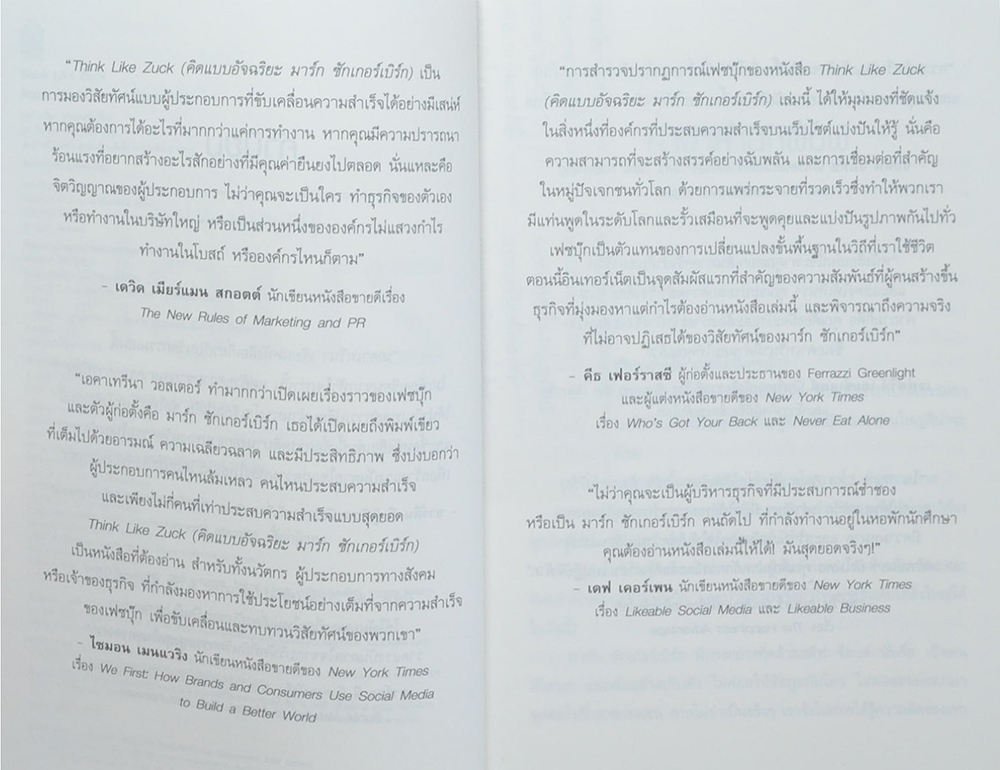 “Think Like Zuck (คิดแบบอัจฉริยะ มาร์ก ซักเกอร์เบิร์ก) เป็น
การมองวิสัยทัศน์แบบผู้ประกอบการที่ขับเคลื่อนความสำเร็จได้อย่างมีเสน่ห์
หากคุณต้องการได้อะไรที่มากกว่าแค่การทำงาน หากคุณมีความปรารถนา
ร้อนแรงที่อยากสร้างอะไรสักอย่างที่มีคุณค่ายืนยงไปตลอด นั่นแหละคือ
จิตวิญญาณของผู้ประกอบการ ไม่ว่าคุณจะเป็นใคร ทำธุรกิจของตัวเอง
หรือทำงานในบริษัทใหญ่ หรือเป็นส่วนหนึ่งขององค์กรไม่แสวงกำไร
ทำงานในโบสถ์ หรือองค์กรไหนก็ตาม”
– เดวิด เมียร์แมน สกอตต์ นักเขียนหนังสือขายดีเรื่อง
The New Rules of Marketing and PR
“เอคาเทรีนา วอลเตอร์ ทำมากกว่าเปิดเผยเรื่องราวของเฟซบุ๊ก
และตัวผู้ก่อตั้งคือ มาร์ก ซักเกอร์เบิร์ก เธอได้เปิดเผยถึงพิมพ์เขียว
ที่เต็มไปด้วยอารมณ์ ความเฉลียวฉลาด และมีประสิทธิภาพ ซึ่งบ่งบอกว่า
ผู้ประกอบการคนไหนล้มเหลว คนไหนประสบความสำเร็จ
และเพียงไม่กี่คนที่เท่าประสบความสำเร็จแบบสุดยอด
Think Like Zuck (คิดแบบอัจฉริยะ มาร์ก ซักเกอร์เบิร์ก)
เป็นหนังสือที่ต้องอ่าน สำหรับทั้งนวัตกร ผู้ประกอบการทางสังคม
หรือเจ้าของธุรกิจ ที่กำลังมองหาการใช้ประโยชน์อย่างเต็มที่จากความสำเร็จ
ของเฟซบุ๊ก เพื่อขับเคลื่อนและทบทวนวิสัยทัศน์ของพวกเขา”
– ไซมอน เมนแวริง นักเขียนหนังสือขายดีของ New York Times
เรื่อง We First: How Brands and Consumers Use Social Media
to Build a Better World
“การสำรวจปรากฏการณ์เฟซบุ๊กของหนังสือ Think Like Zuck
(คิดแบบอัจฉริยะ มาร์ก ซักเกอร์เบิร์ก) เล่มนี้ ได้ให้มุมมองที่ชัดแจ้ง
ในสิ่งหนึ่งที่องค์กรที่ประสบความสำเร็จบนเว็บไซต์แบ่งปันให้รู้ นั่นคือ
ความสามารถที่จะสร้างสรรค์อย่างฉับพลัน และการเชื่อมต่อที่สำคัญ
ในหมู่ปัจเจกชนทั่วโลก ด้วยการแพร่กระจายที่รวดเร็วซึ่งทำให้พวกเรา
มีแท่นพูดในระดับโลกและรั้วเสมือนที่จะพูดคุยและแบ่งปันรูปภาพกันไปทั่ว
เฟซบุ๊กเป็นตัวแทนของการเปลี่ยนแปลงขั้นพื้นฐานในวิถีที่เราใช้ชีวิต
ตอนนี้อินเทอร์เน็ตเป็นจุดสัมผัสแรกที่สำคัญของความสัมพันธ์ที่ผู้คนสร้างขึ้น
ธุรกิจที่มุ่งมองหาแต่กำไรต้องอ่านหนังสือเล่มนี้ และพิจารณาถึงความจริง
ที่ไม่อาจปฏิเสธได้ของวิสัยทัศน์ของมาร์ก ซักเกอร์เบิร์ก”
– คีธ เฟอร์ราสซี ผู้ก่อตั้งและประธานของ Ferrazzi Greenlight
และผู้แต่งหนังสือขายดีของ New York Times
เรื่อง Who's Got Your Back และ Never Eat Alone
“ไม่ว่าคุณจะเป็นผู้บริหารธุรกิจที่มีประสบการณ์ช่ำชอง
หรือเป็น มาร์ก ซักเกอร์เบิร์ก คนถัดไป ที่กำลังทำงานอยู่ในหอพักนักศึกษา
คุณต้องอ่านหนังสือเล่มนี้ให้ได้! มันสุดยอดจริงๆ!”
– เดฟ เคอร์เพน นักเขียนหนังสือขายดีของ New York Times
เรื่อง Likeable Social Media และ Likeable Business